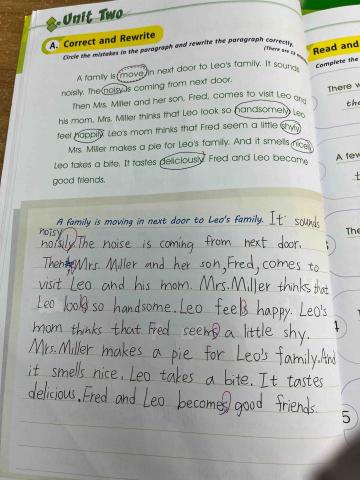 Unit Two
A. Correct and Rewrite
Circle the mistakes in the paragraph and rewrite the paragraph correctly.
(There are
A family is move in next door to Leo's family. It sounds
noisily. The noisy is coming from next door.
Then Mrs. Miller and her son, Fred, comes to visit Leo and
his mom. Mrs. Miller thinks that Leo look so handsomely. Leo
feel happily. Leo's mom thinks that Fred seem a little shyly.
Mrs. Miller makes a pie for Leo's family. And it smells nicely.
Leo takes a bite. It tastes deliciously. Fred and Leo become
good friends.
A family is moving in next door to Leo's family. It sounds
noisy
noisily. The noise is coming from next door.
Then Mrs. Miller and her son, Fred, comes to
visit Leo and his mom. Mrs. Miller thinks that
Leo looks so handsome. Leo feels happy. Leo's
mom thinks that Fred seems a little shy.
Mrs. Miller makes a pie for Leo's family. And
it smells nice. Leo takes a bite. It tastes
delicious. Fred and Leo becomes good friends.
Read and
Complete the
There w
the
A few
t
The
5